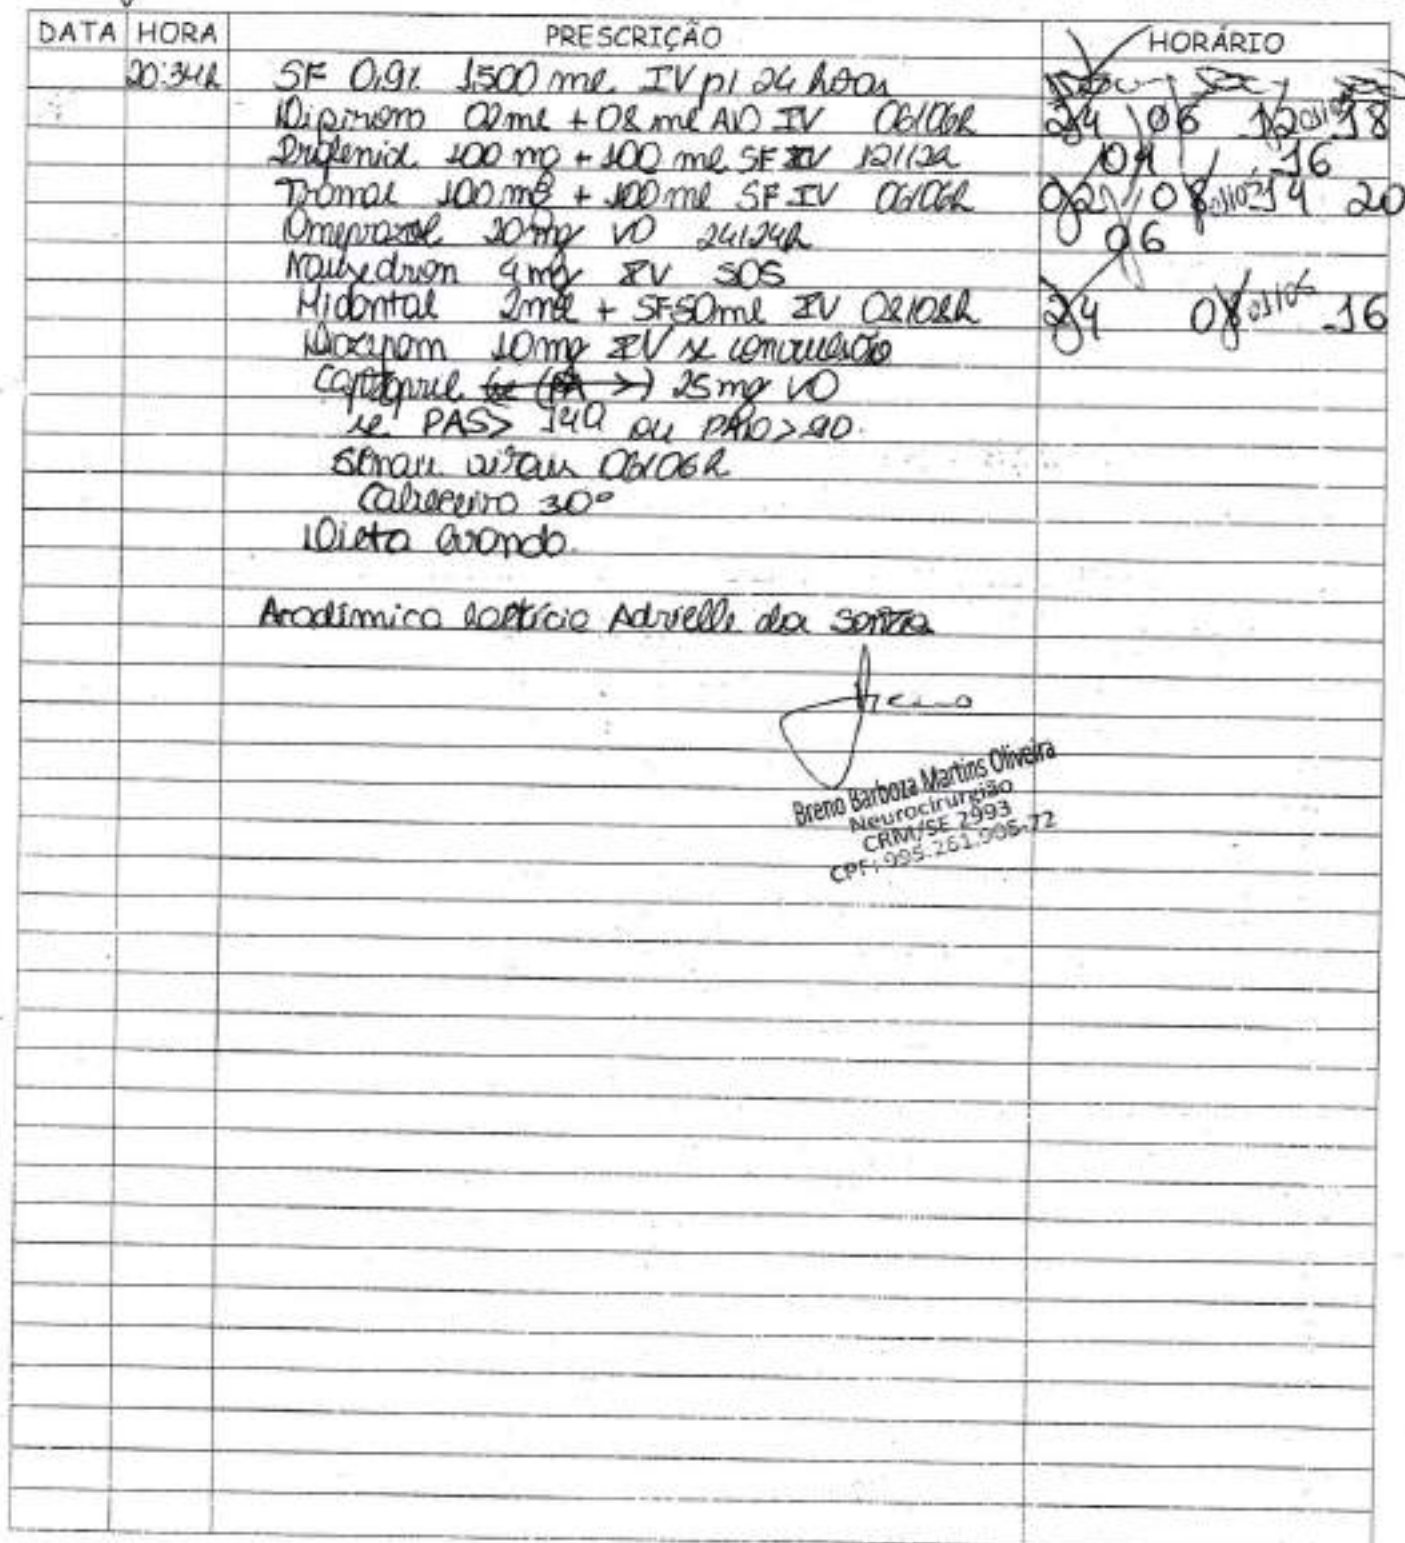 DATA HORA PRESCRIÇÃO HORÁRIO
20:34h SF 0,9% 1500 ml IV p/ 24 horas
Dipirona 02ml + 08 ml AD IV 06/06h 24 06 12 18
Profenid 100 mg + 100 ml SF IV 12/12h 04 16
Tramal 100 mg + 100 ml SF IV 06/06h 02 08 14 20
Omeprazol 20mg VO 24/24h 06
Nausedron 4mg IV SOS
Nidontal 2ml + SF 50ml IV 08/08h 24 08 16
Diazepam 10mg IV se convulsão
Captopril 25mg VO
se PAS> 140 ou PAD>90.
Sinais vitais 06/06h
Cabeceira 30°
Dieta branda.
Acadêmica Adrielle da
Breno Barboza Martins Oliveira
Neurocirurgião
CRM/SE 2993
CPF: 995.261.905-72